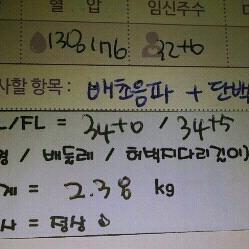 혈 압 임신주수
130/76 32+0
사할 항목 : 배초음파 + 단백
L/FL = 34+0 / 34+5
/ 배둘레 / 허벅지다리길이)
계 = 2.38 kg
사 = 정상